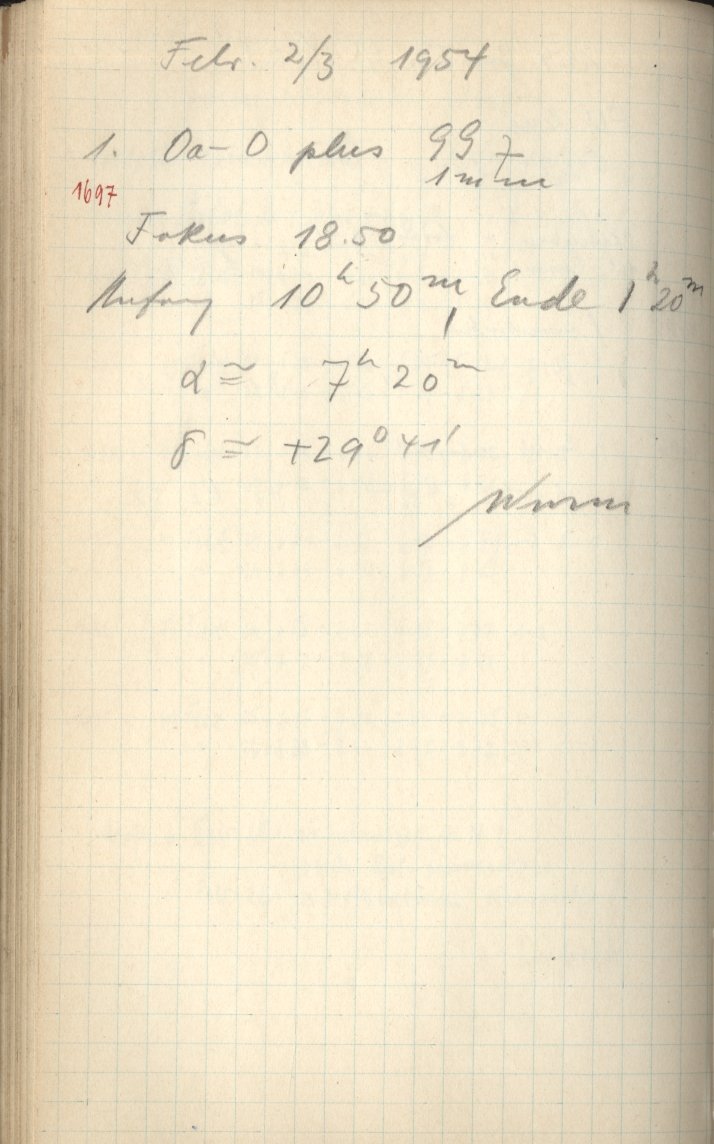 Febr. 2/3 1954
1. Oa-O plus 99 7
1 mm
1697
Fokus 18.50
Anfang 10h 50m, Ende 1h 20m
α ≅ 7h 20m
δ ≅ +29° 41'
Wurm